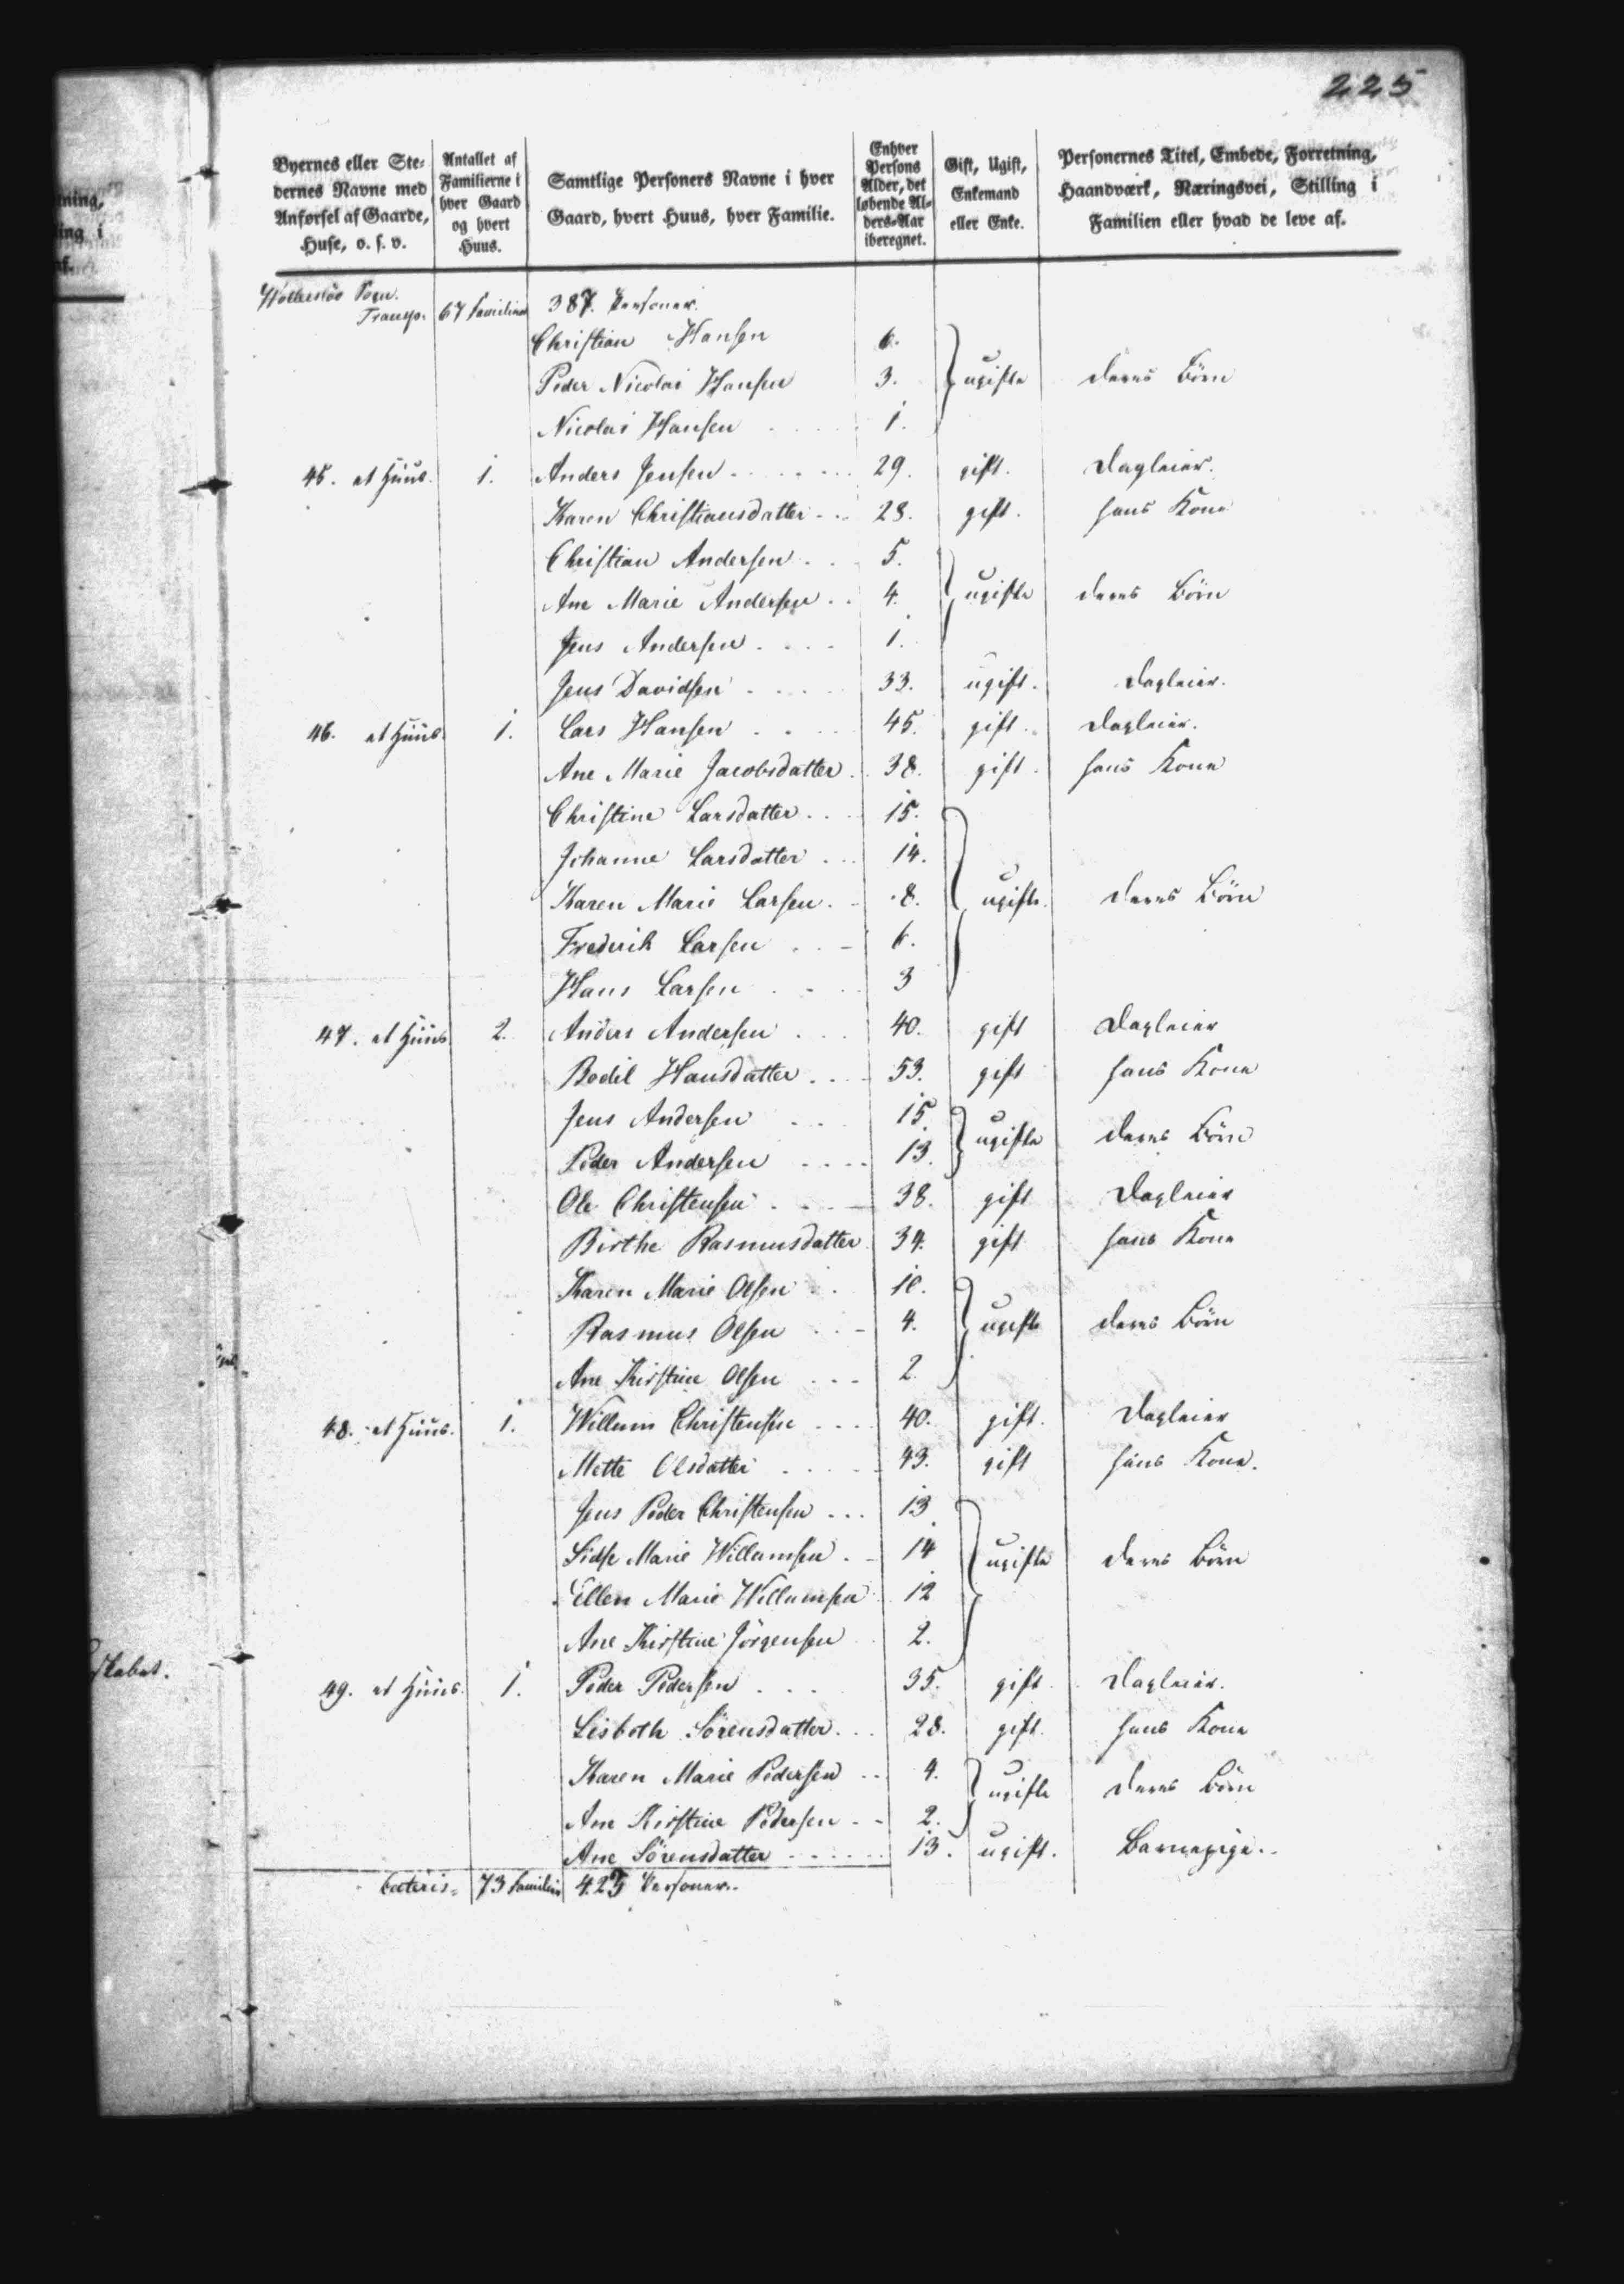 225
Byernes eller Ste-
dernes Navne med
Anførsel af Gaarde,
Huse, o. s. v.
Antallet af
Familierne i
hver Gaard
og hvert
Huus.
Samtlige Personers Navne i hver
Gaard, hvert Huus, hver Familie.
Enhver
Persons
Alder, det
løbende Al-
ders-Aar
iberegnet.
Gift, Ugift,
Enkemand
eller Enke.
Personernes Titel, Embede, Forretning,
Haandværk, Næringsvei, Stilling i
Familien eller hvad de leve af.
Sogn.
Transp. 67 Familier 387. Personer.
Christian Hansen 6.
Peder Nicolai Hansen 3. ugifte deres Börn
Nicolai Hansen 1.
45. et Huus. 1. Anders Jensen 29. gift. Dagleier.
Karen Christiansdatter 28. gift. hans Kone
Christian Andersen 5.
Ane Marie Andersen 4. ugifte deres Börn
Jens Andersen 1.
Jens Davidsen 33. ugift. Dagleier.
46. et Huus. 1. Lars Hansen 45. gift. Dagleier.
Ane Marie Jacobsdatter 38. gift. hans Kone
Christine Larsdatter 15.
Johanne Larsdatter 14.
Karen Marie Larsen 8. ugifte. deres Börn
Frederik Larsen 6.
Hans Larsen 3
47. et Huus 2. Anders Andersen 40. gift Dagleier
Bodil Hansdatter 53. gift hans Kone
Jens Andersen 15.
Peder Andersen 13. ugifte deres Börn
Ole Christensen 38. gift Dagleier
Birthe Rasmusdatter 34. gift hans Kone
Karen Marie Olsen 10.
Rasmus Olsen 4. ugifte deres Börn
Ane Kirstine Olsen 2.
48. et Huus. 1. Willum Christensen 40. gift. Dagleier
Mette Olsdatter 43. gift hans Kone.
Jens Peder Christensen 13.
Sidse Marie Willumsen 14 ugifte deres Börn
Ellen Marie Willumsen 12
Ane Kirstine Jörgensen 2.
49. et Huus. 1. Peder Pedersen 35. gift. Dagleier.
Lisbeth Sörensdatter 28. gift. hans Kone
Karen Marie Pedersen 4. ugifte deres Börn
Ane Kirstine Pedersen 2.
Ane Sörensdatter 13. ugift. Barnepige.
73 Familier 423 Personer.